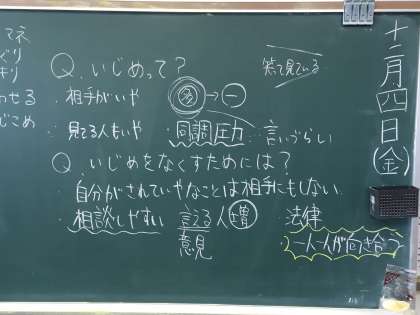 十二月四日(金)
Q.いじめって?
笑て見ている
・相手がいや
多→一
・見てる人もいや
・同調圧力
・言いづらい
Q.いじめをなくすためには?
・自分がされていやなことは相手にもしない。
・相談しやすい 言える人増
意見
・法律
・一人一人が向き合う
マネ